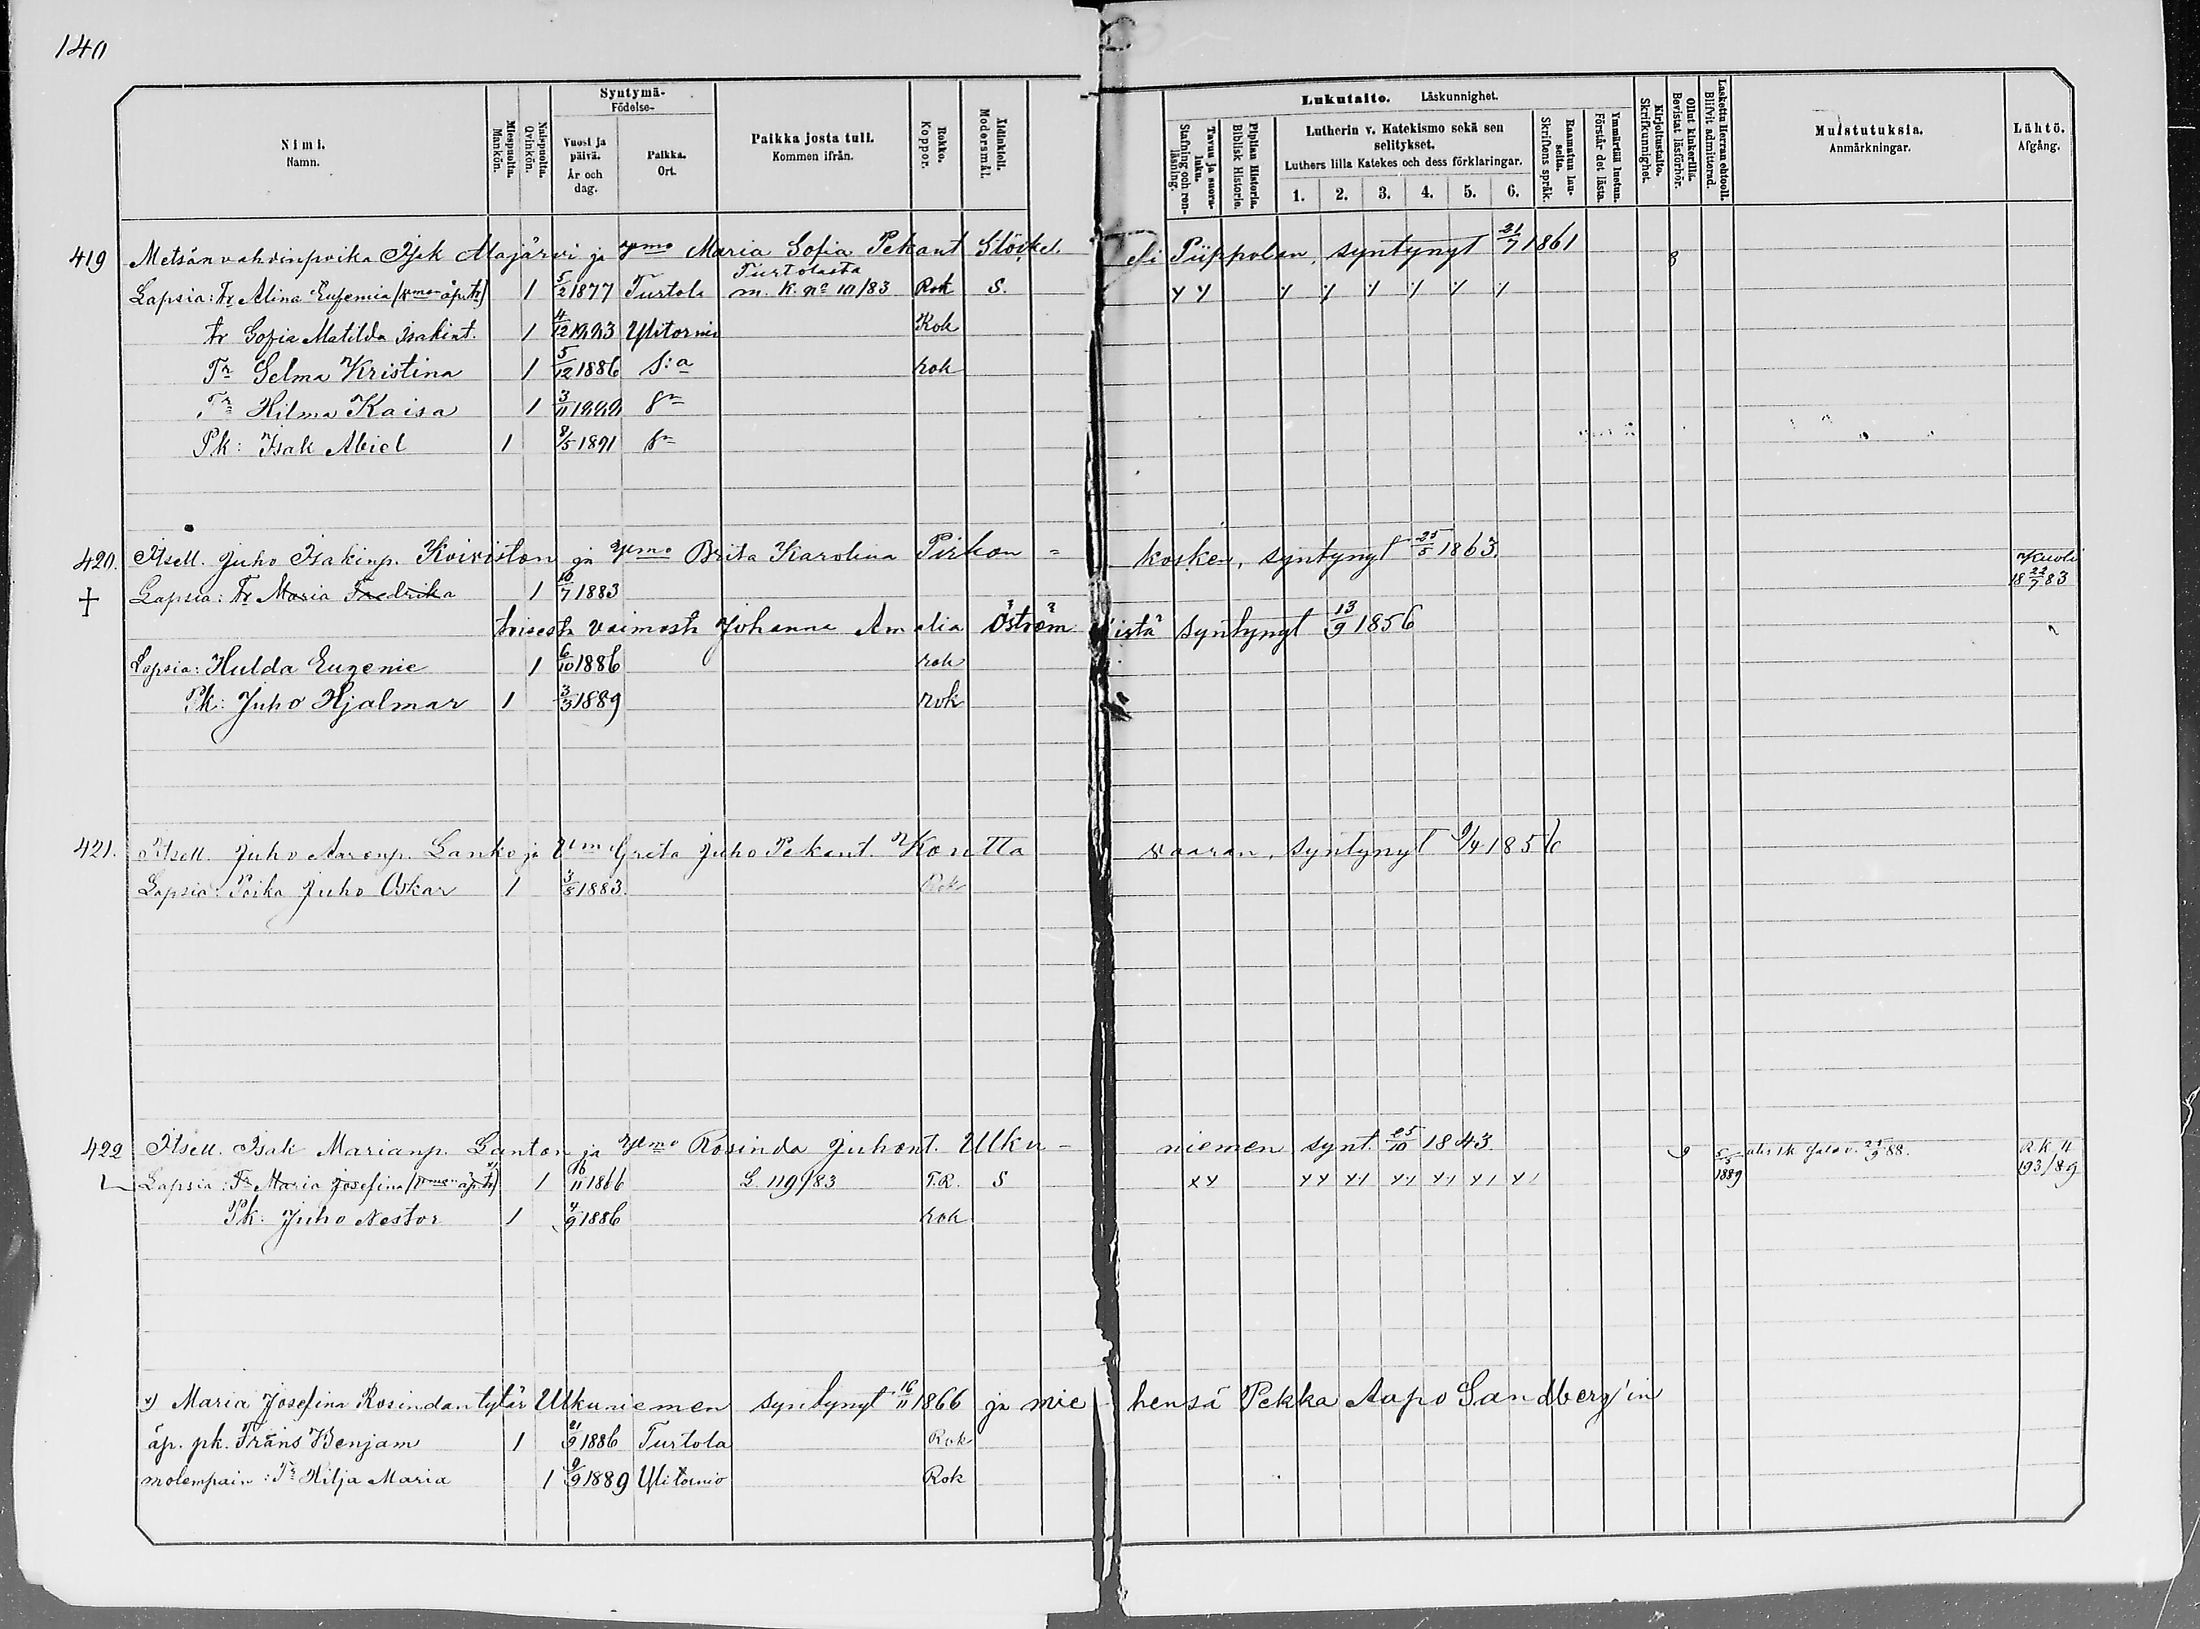 140
Nimi. Namn.
Miespuolta. Mankön.
Naispuolta. Qvinkön.
Syntymä- Födelse-
Vuosi ja päivä. År och dag.
Paikka. Ort.
Paikka josta tuli. Kommen ifrån.
Rokko. Koppor.
Äidinkieli. Modersmål.
Lukutaito. Läskunnighet.
Tavuu ja suora-luku. Stafning och ren-läsning.
Piplian Historia. Biblisk Historie.
Lutherin v. Katekismo sekä sen selitykset.
Luthers lilla Katekes och dess förklaringar.
1. 2. 3. 4. 5. 6.
Raamatun lau-seita. Skriftens språk.
Ymmärtää luetun. Förstår det lästa.
Kirjoitustaito. Skrifkunnighet.
Ollut kinkerillä. Bevistat läsförhör.
Laskettu Herran ehtooll. Blifvit admitterad.
Muistutuksia. Anmärkningar.
Lähtö. Afgång.
419 Metsänvahdinpoika Isak Alajärvi ja vmo Maria Sofia Pekant Stöckel eli Piippolan, syntynyt 21/7 1861 8
Lapsia: Tr Alina Eufemia (vmon äp. tr) 1 5/2 1877 Turtola Turtolasta m. k. no 10/83 Rok S.
tr Sofia Matilda Isakint. 1 4/12 1883 Ylitornio Rok
Tr Selma Kristina 1 5/12 1886 S:a rok
Tr Hilma Kaisa 1 3/11 1888 sn
Pk: Isak Abiel 1 8/5 1891 sn
420. Itsell. Juho Isakinp. Koiviston ja vmo Brita Karolina Pirkon=kosken, syntynyt 25/5 1863.
Lapsia: Tr Maria Fredrika 1 10/7 1883 Kuoli 18 22/7 83
toisesta vaimosta Johanna Amalia Öström'istä syntynyt 13/9 1856
Lapsia: Hulda Eugenie 1 6/10 1886 rok
Pk: Juho Hjalmar 1 3/3 1889 rok
421. Itsell. Juho Aaronp. Lanko ja Vmo Greta Juho Pekant. Kontta vaaran, syntynyt 9/4 1856
Lapsia: Poika Juho Oskar 1 3/5 1883. Rok
422 Itsell. Isak Marianp. Lanton ja vmo Rosinda Juhont. Ulku-niemen synt. 25/10 1843. 9 5/5 1889 R. k. 4 193/89
Lapsia: Tr Maria Josefina (vmon äp. tr) x) 1 16/11 1866 S. 119/83 T.R. S
Pk: Juho Nestor 1 4/9 1886 rok
x) Maria Josefina Rosindantytär Ulkuniemen syntynyt 16/11 1866 ja miehensä Pekka Aapo Sandberg'in
äp. pk. Frans Benjam 1 21/9 1886 Turtola Rok
molempain: Tr Hilja Maria 1 9/9 1889 Ylitornio Rok